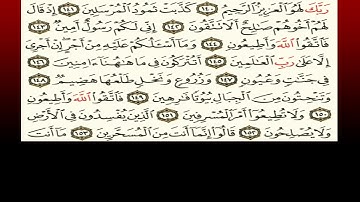 رَبَّكَ لَهُوَ الْعَزِيزُ الرَّحِيمُ ١٤٠ كَذَّبَتْ ثَمُودُ الْمُرْسَلِينَ ١٤١ إِذْ قَالَ
لَهُمْ أَخُوهُمْ صَالِحٌ أَلَا تَتَّقُونَ ١٤٢ إِنِّي لَكُمْ رَسُولٌ أَمِينٌ ١٤٣
فَاتَّقُوا اللَّهَ وَأَطِيعُونِ ١٤٤ وَمَا أَسْأَلُكُمْ عَلَيْهِ مِنْ أَجْرٍ إِنْ أَجْرِيَ
إِلَّا عَلَىٰ رَبِّ الْعَالَمِينَ ١٤٥ أَتُتْرَكُونَ فِي مَا هَاهُنَا آمِنِينَ ١٤٦
فِي جَنَّاتٍ وَعُيُونٍ ١٤٧ وَزُرُوعٍ وَنَخْلٍ طَلْعُهَا هَضِيمٌ ١٤٨
وَتَنْحِتُونَ مِنَ الْجِبَالِ بُيُوتًا فَارِهِينَ ١٤٩ فَاتَّقُوا اللَّهَ وَأَطِيعُونِ
١٥٠ وَلَا تُطِيعُوا أَمْرَ الْمُسْرِفِينَ ١٥١ الَّذِينَ يُفْسِدُونَ فِي الْأَرْضِ
وَلَا يُصْلِحُونَ ١٥٢ قَالُوا إِنَّمَا أَنْتَ مِنَ الْمُسَحَّرِينَ ١٥٣ مَا أَنْتَ